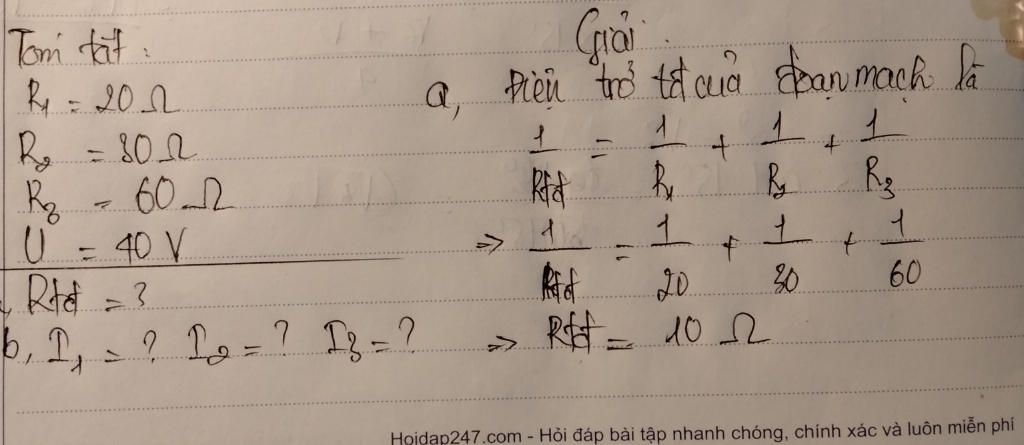 Tóm tắt :
R₁ = 20 Ω
R₂ = 30 Ω
R₃ = 60 Ω
U = 40 V
, Rtđ = ?
b, I₁ = ? I₂ = ? I₃ = ?
Giải.
a, Điện trở tđ của đoạn mạch là
1/Rtđ = 1/R₁ + 1/R₂ + 1/R₃
=> 1/Rtđ = 1/20 + 1/30 + 1/60
=> Rtđ = 10 Ω
Hoidap247.com - Hỏi đáp bài tập nhanh chóng, chính xác và luôn miễn phí